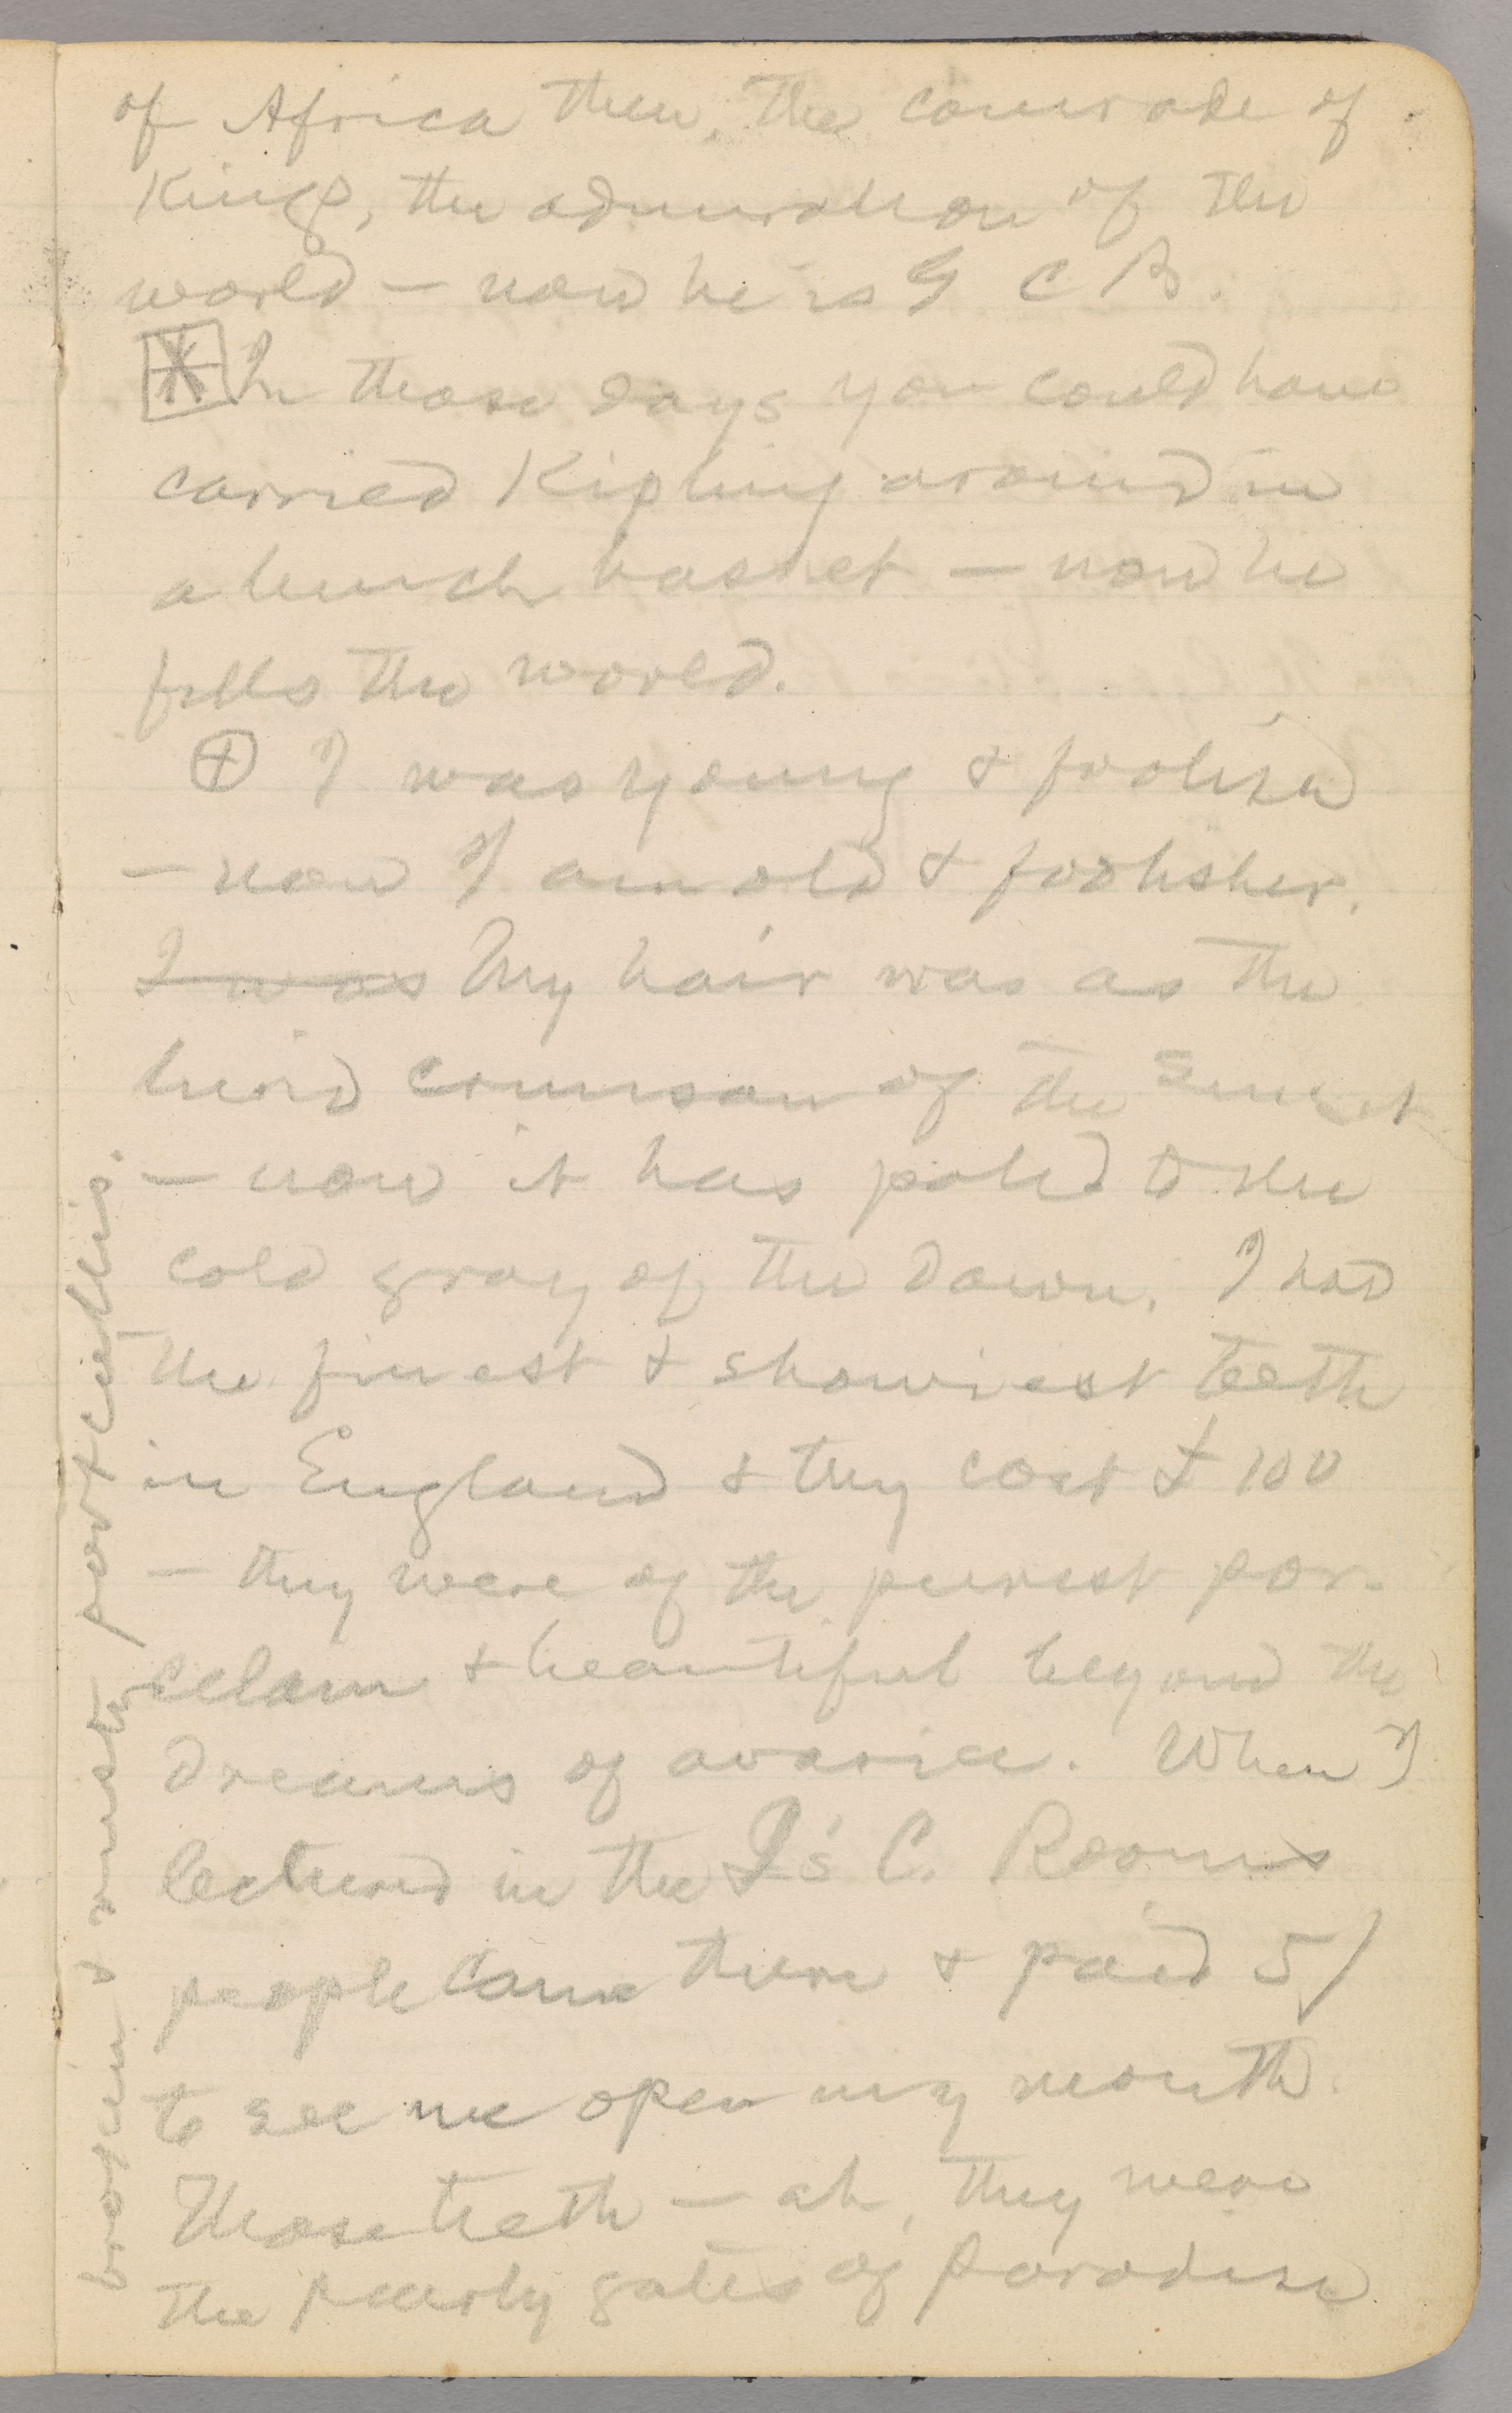 of Africa then, the comrade of
Kings, the admiration of the
world — now he is G C B.
In those days you could have
carried Kipling around in
a lunch basket — now he
fills the world.
⊕ I was young & foolish
— now I am old & foolisher.
I was My hair was as the
lurid crimson of the sunset
— now it has paled to the
cold gray of the dawn. I had
the finest & showiest teeth
in England & they cost £100
— they were of the purest por-
celain & beautiful beyond the
dreams of avarice. When I
lectured in the Q's C. Rooms
people came there & paid 5/
to see me open my mouth.
Those teeth — ah, they were
the pearly gates of Paradise
portcullis.